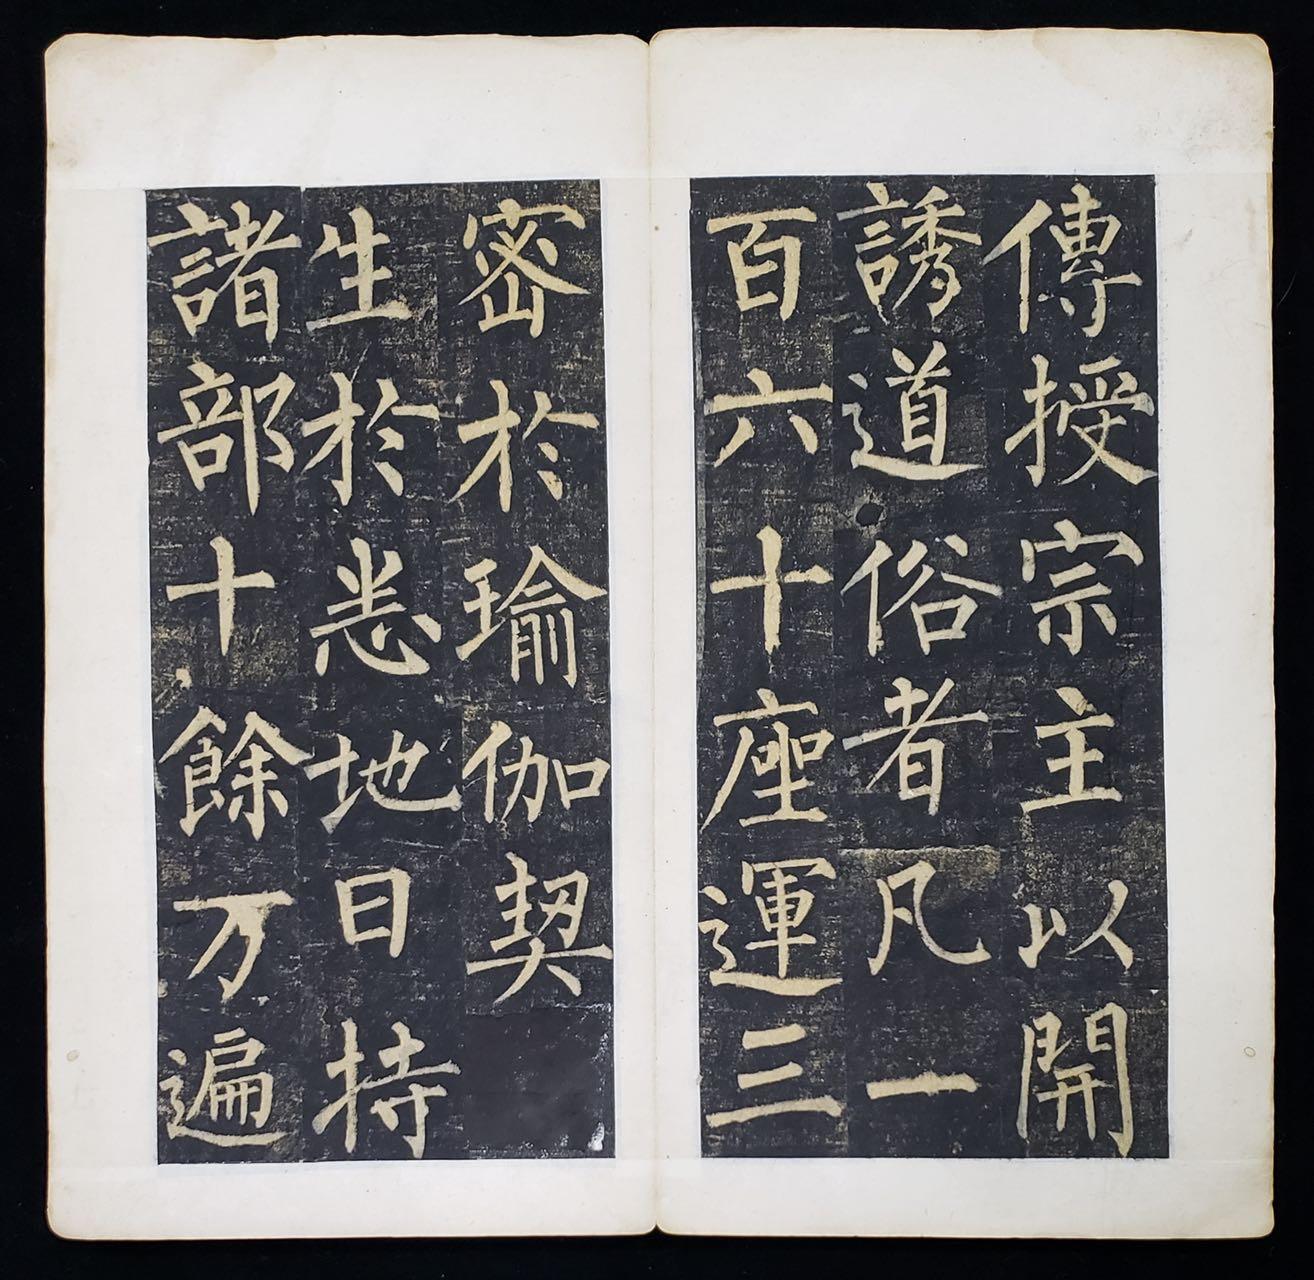 傳授宗主以開
誘道俗者凡一
百六十座運三
密於瑜伽契
生於悉地日持
諸部十餘万遍